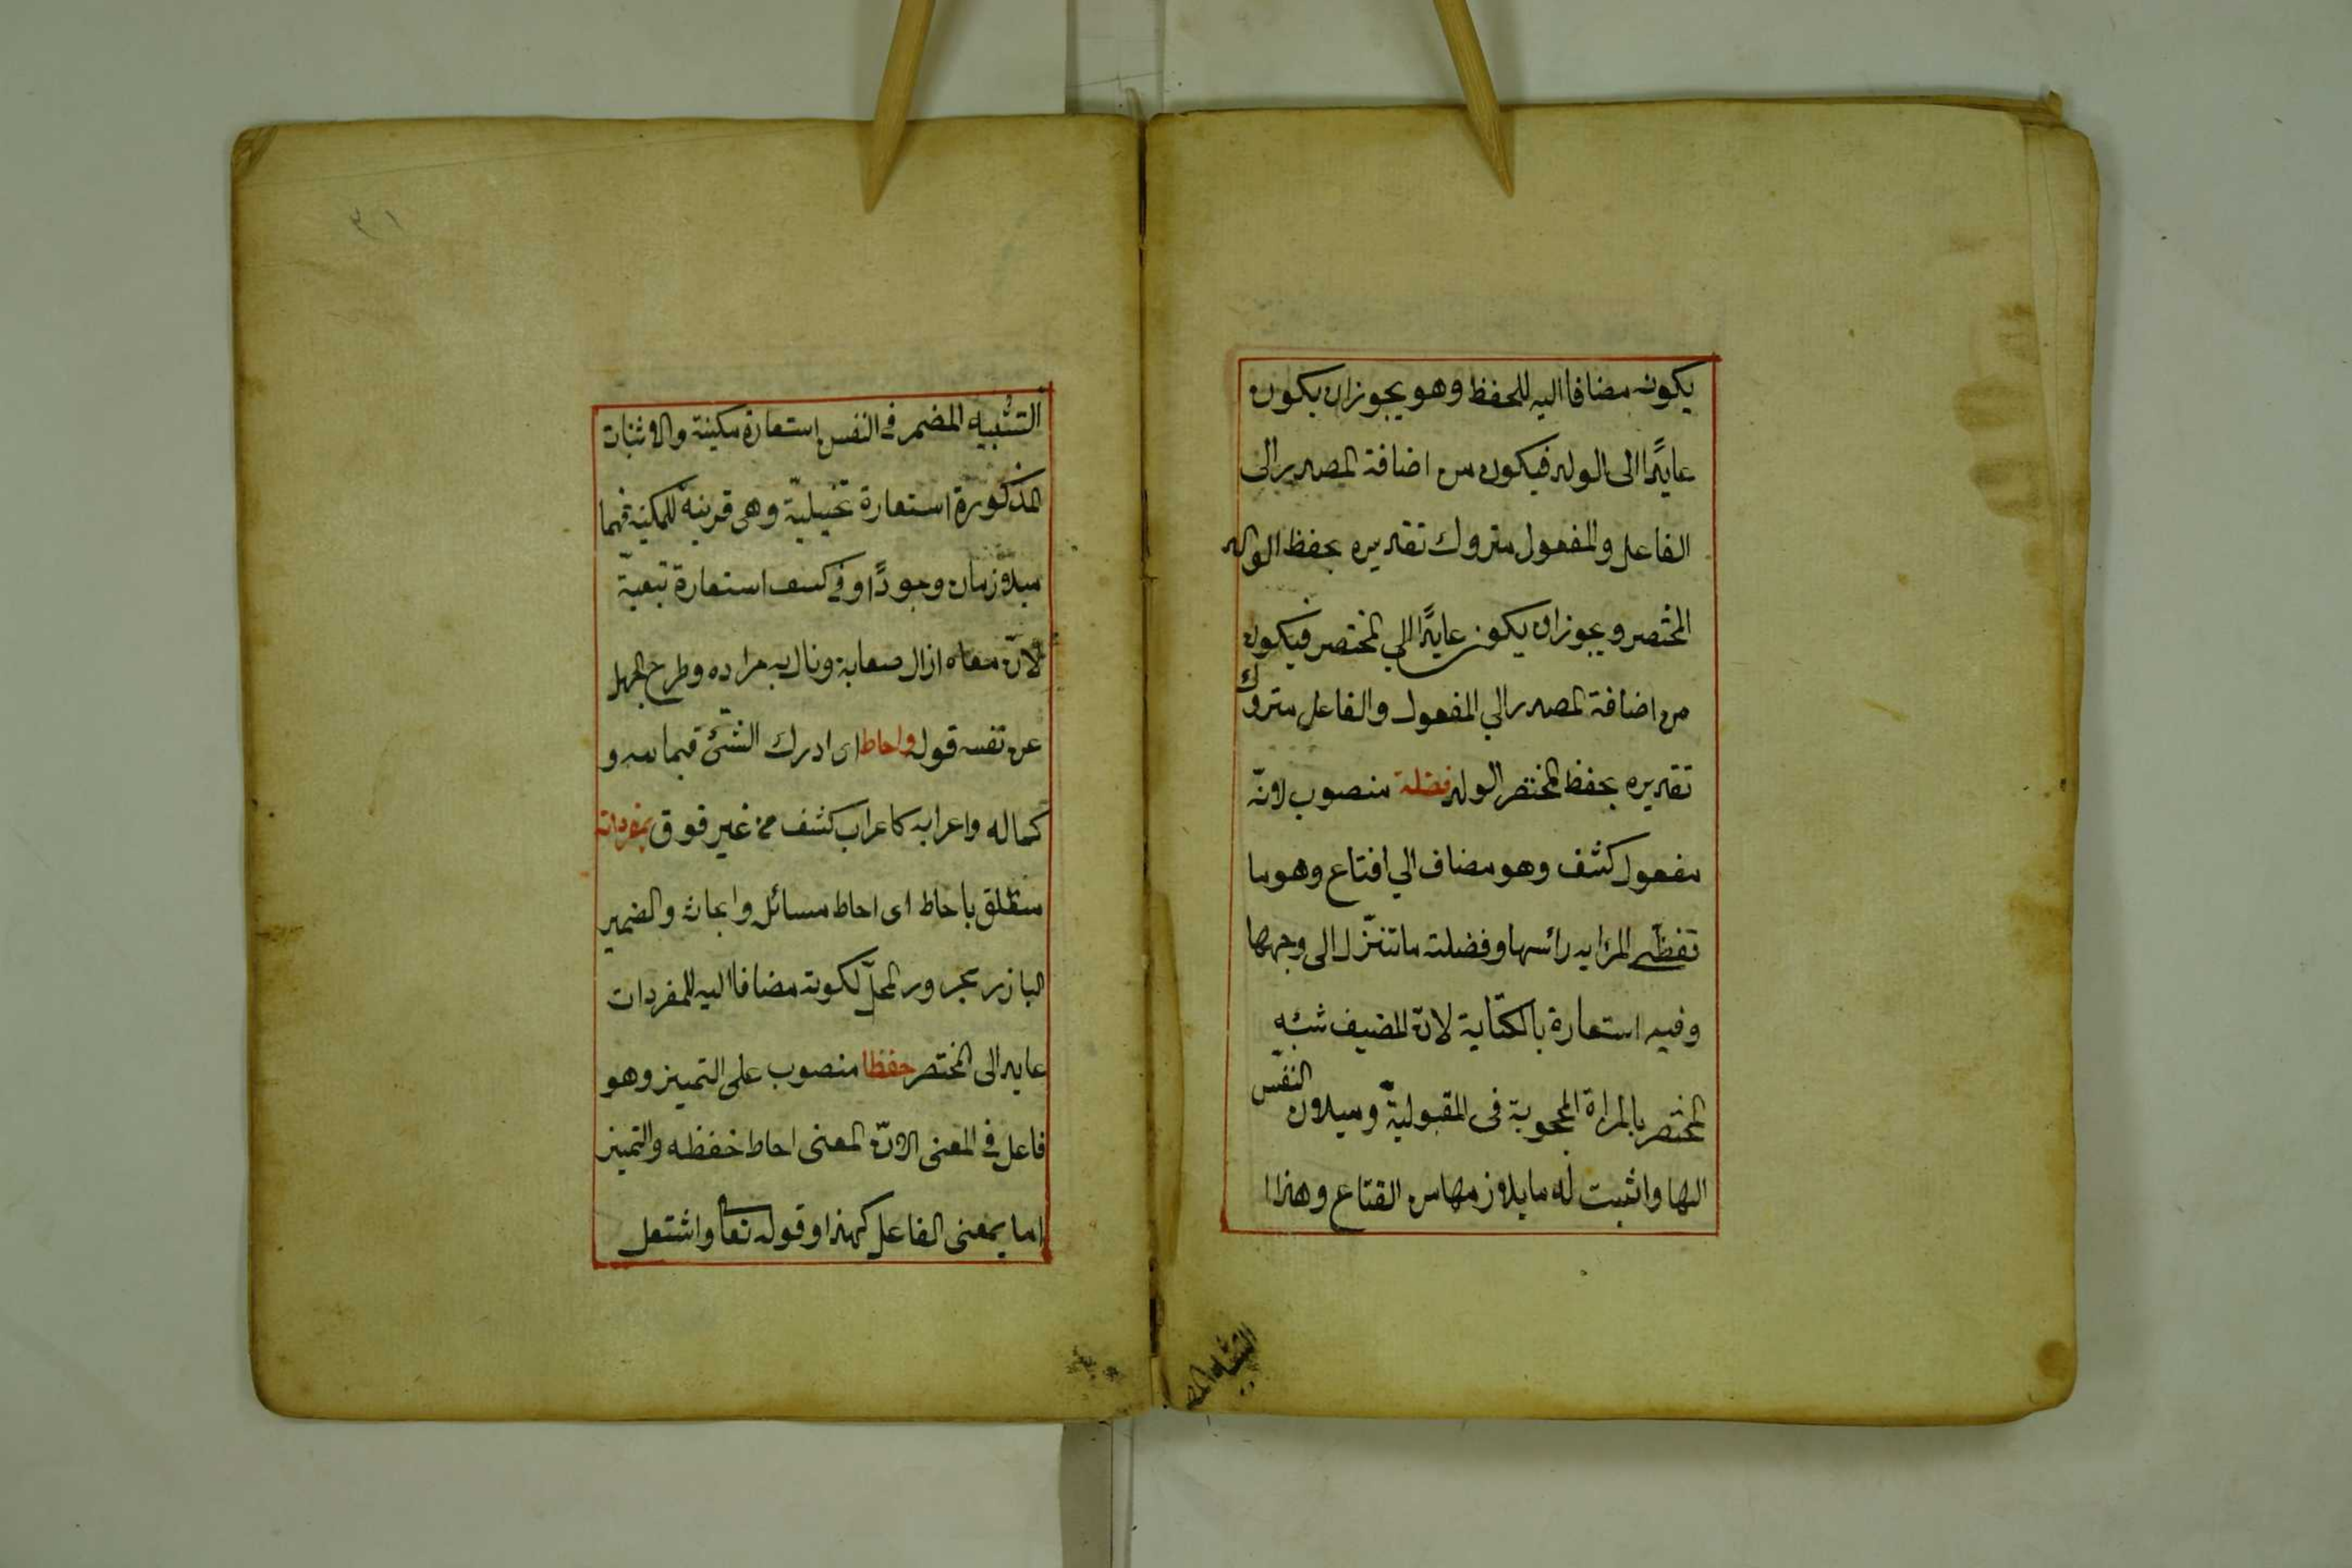 يكونه مضافا اليه للحفظ وهو يجوز ان يكون
عايدًا الى الولد فيكون من اضافة المصدر الى
الفاعل والمفعول متروك تقديره بحفظ الولد
المختصر ويجوز ان يكون عايدًا الي المختصر فيكون
من اضافة المصدر الي المفعول والفاعل متروك
تقديره بحفظ المختصر الولد فضلة منصوب لانّه
مفعول كشف وهو مضاف الي افتاع وهو ما
تفظّى المراة به رائسها وفضلته ما تتنزّل الى وجهها
وفيه استعارة بالكناية لانّ المضيف شبّه
المختصر بالمراة المحجوبة فى المقبوليّة وميلان النفس
الها واثبت له ما يلازمها من القناع وهذا
التشبيه المضم
٣١
التشبيه المضمر فى النفس استعارة مكينة والاثبات
المذكورة استعارة تخييليّة وهى قرينة للمكنية فهما
ميلازمان وجودًا وفى كسف استعارة تبعيّة
لانّ معناه ازال صعابة ونال به مراده وطرح الجهل
عن نفسه قوله واحاط اى ادرك الشئ
كماله واعرابه كاعراب كشف من غير فوق بمفرداته
متطلق باحاط اى احاط مسائل وابحاث والضمير
البارز مجرور المحلّ لكونه مضافا اليه للمفردات
عايد الى المختصر حفظا منصوب على التميز وهو
فاعل فى المعنى الانّ المعنى احاط حفظه والتميز
اما بمعنى الفاعل كهذا وقوله تعا واشتعل